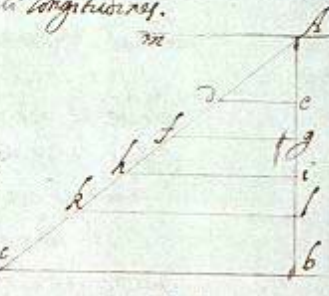 longitudines.
m A
d e
f g
h i
k l
c b